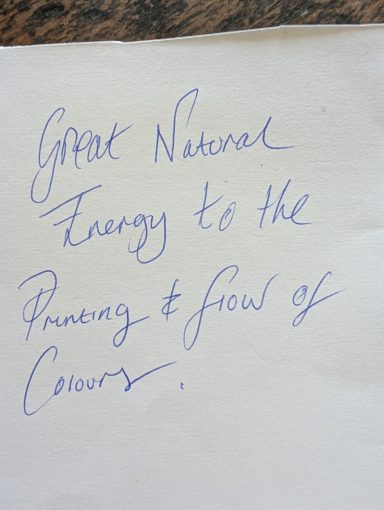 Great Natural
Energy to the
Printing & flow of
Colours.